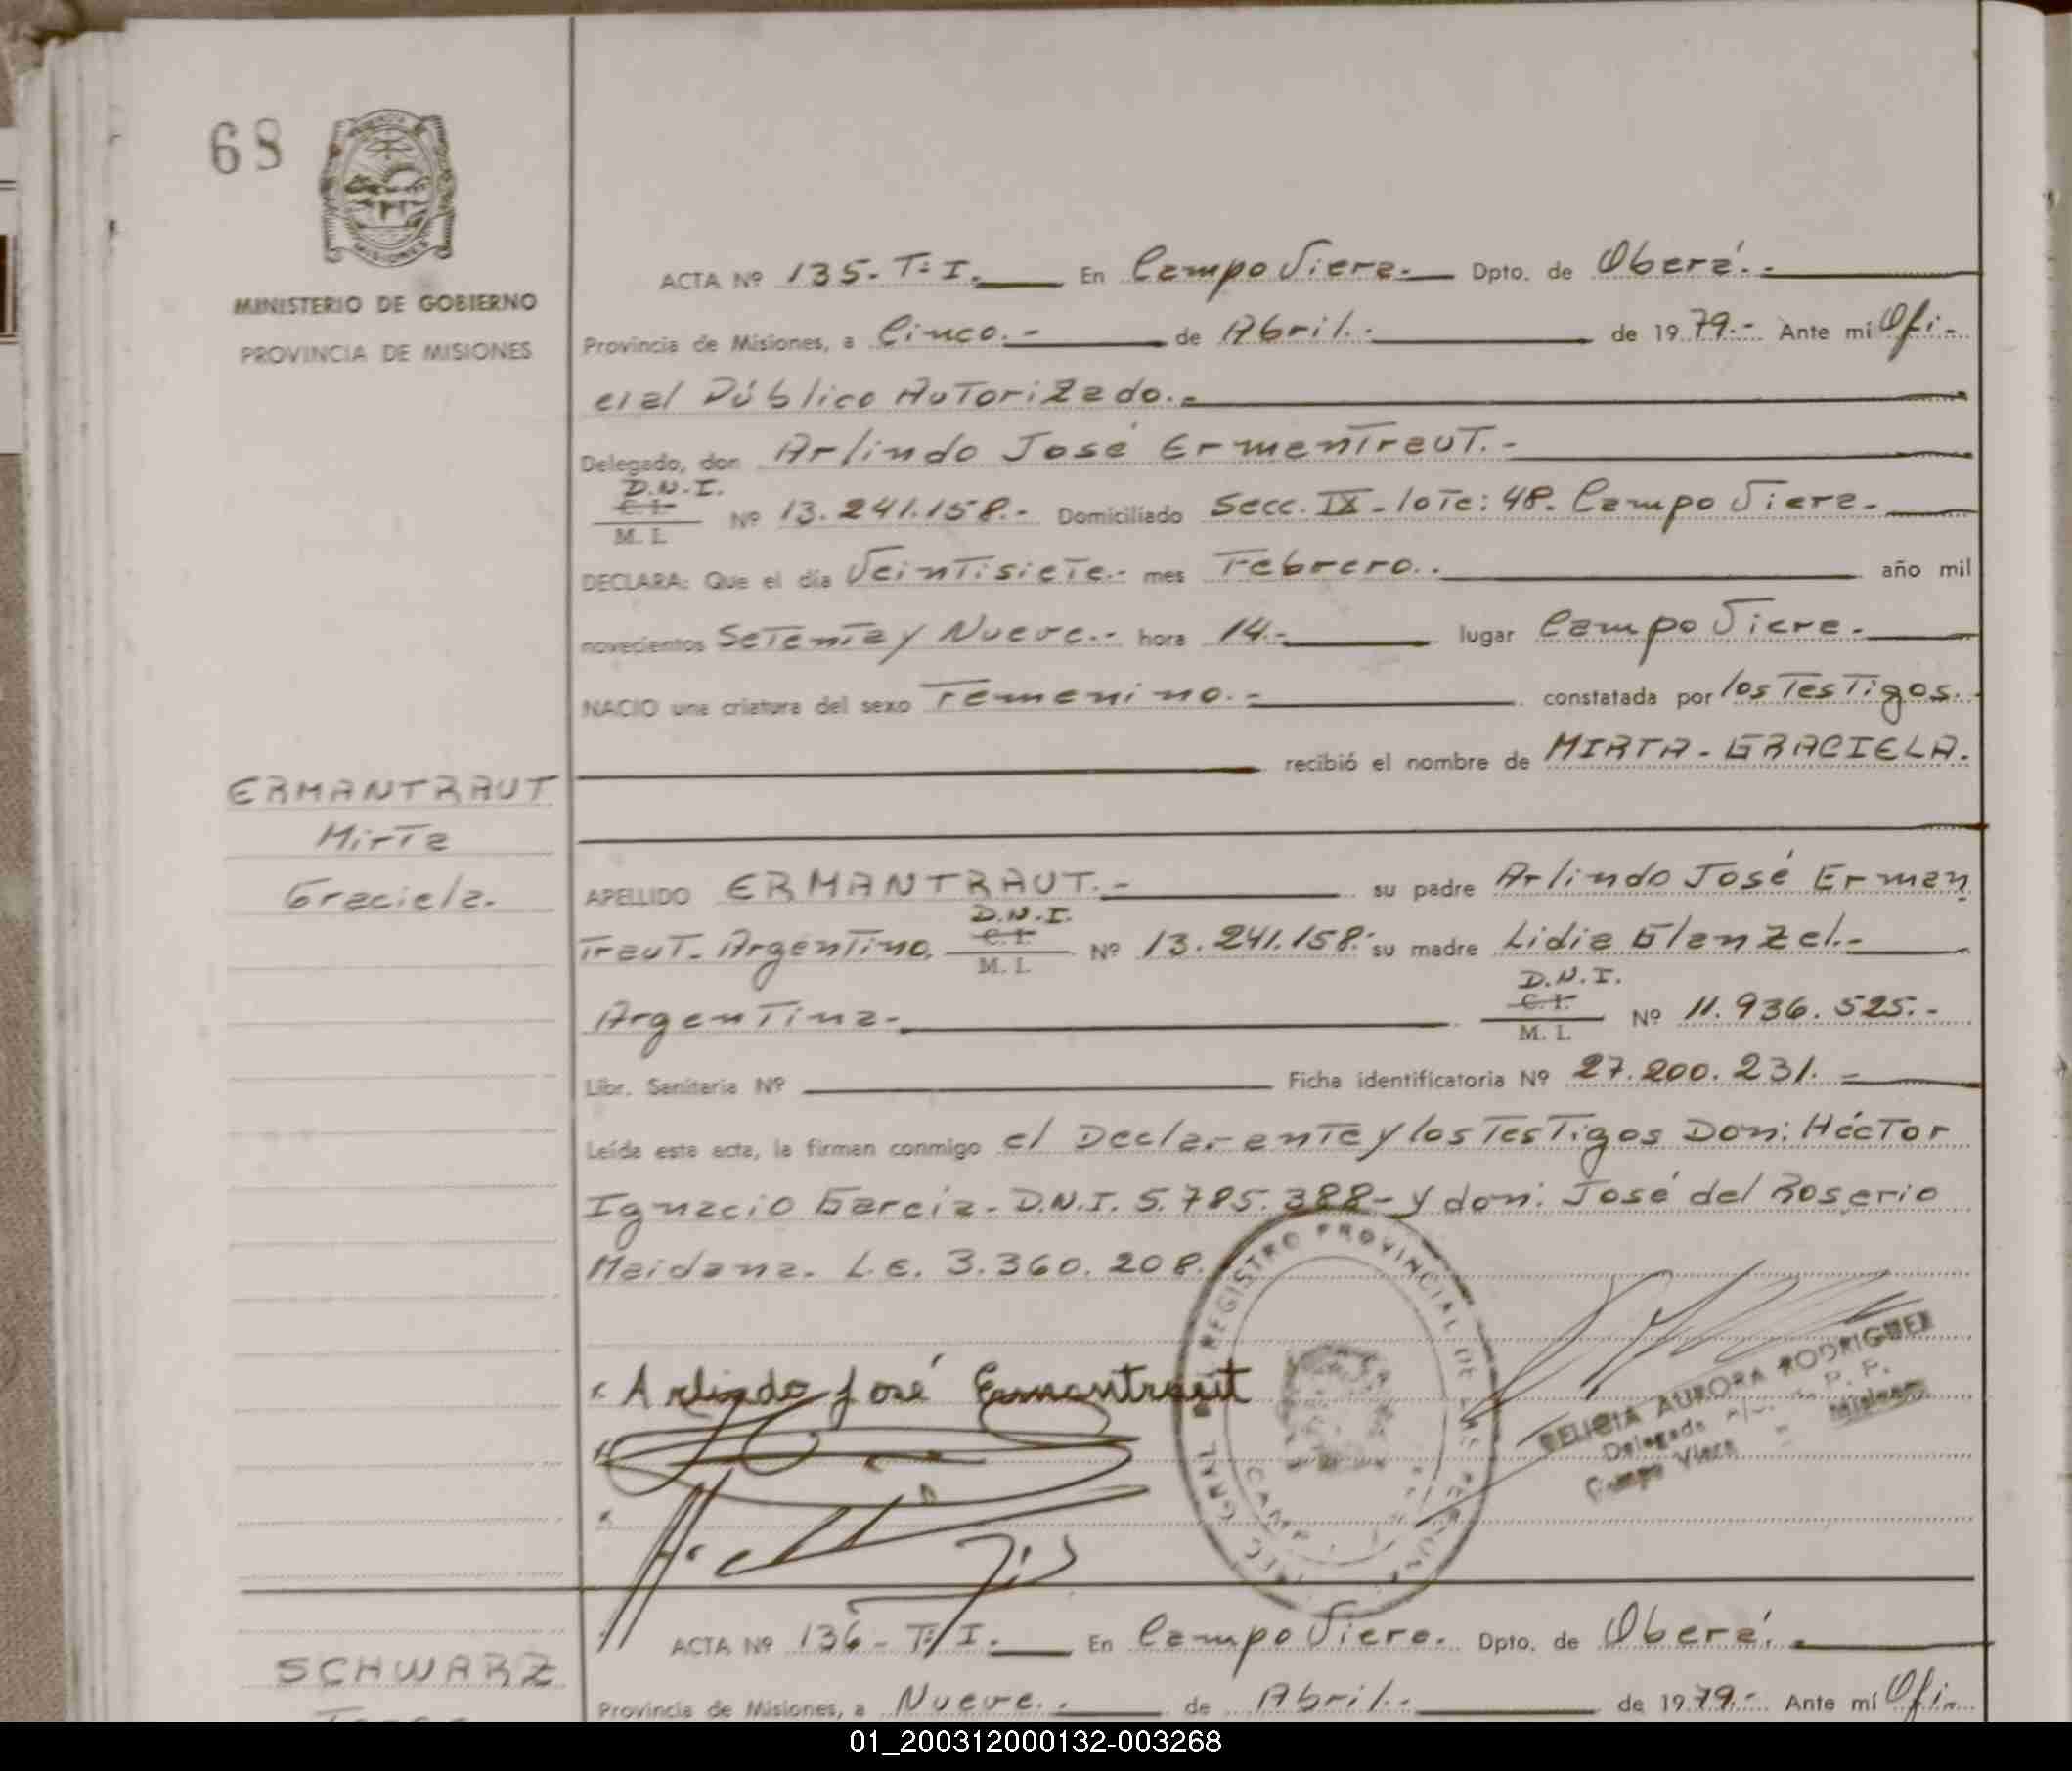 68
MINISTERIO DE GOBIERNO
PROVINCIA DE MISIONES
MISIONES
ACTA Nº 135.- T:I. En Campo Viera.- Dpto. de Oberá.-
Provincia de Misiones, a Cinco.- de Abril.- de 1979.- Ante mí Ofi-
cial Público Autorizado.-
Delegado, don Arlindo José Ermantraut.-
D.N.I.
C. I.
M. I.
Nº 13.241.158.- Domiciliado Secc. IX - lote: 48. Campo Viera.-
DECLARA: Que el día Veintisiete.- mes Febrero.. año mil
novecientos Setenta y Nueve.- hora 14.- lugar Campo Viera.-
NACIO una criatura del sexo Femenino.- constatada por los Testigos.-
recibió el nombre de MIRTA - GRACIELA.
ERMANTRAUT
Mirta
Graciela.
APELLIDO ERMANTRAUT.- su padre Arlindo José Erman
traut. Argentino.
D.N.I.
C. I.
M. I.
Nº 13.241.158.- su madre Lidia Glanzel.-
Argentina.-
D.N.I.
C. I.
M. I.
Nº 11.936.525.-
Libr. Sanitaria Nº Ficha identificatoria Nº 27.200.231.-
Leída esta acta, la firman conmigo el Declarante y los Testigos Don: Héctor
Ignacio García - D.N.I. 5.785.388 - y don: José del Rosario
Maidana. L.E. 3.360.208.
REGISTRO PROVINCIAL DE LAS PERSONAS
Arlindo José Ermantraut
FELICIA AURORA RODRIGUEZ
Delegada R. P. P.
Campo Viera - Misiones
ACTA Nº 136 - T:I. En Campo Viera. Dpto. de Oberá.-
SCHWARZ
Provincia de Misiones, a Nueve.- de Abril.- de 1979.- Ante mí Ofi-
01_200312000132-003268